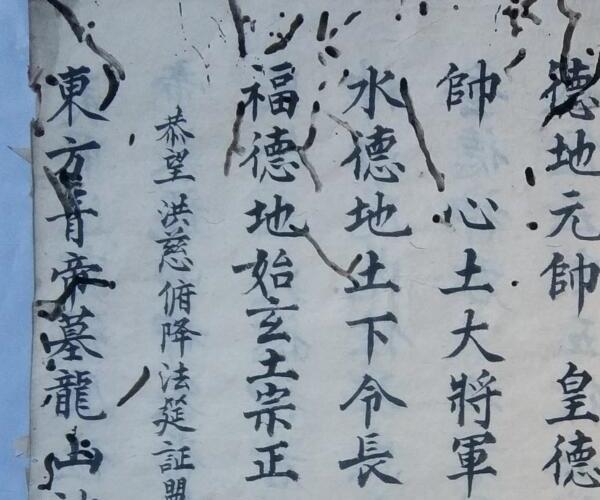 德地元帥 皇德
帥 心土大將軍
水德地止下令長
福德地始玄土宗正
恭望洪慈俯降法筵証盟
東方青帝墓龍山神